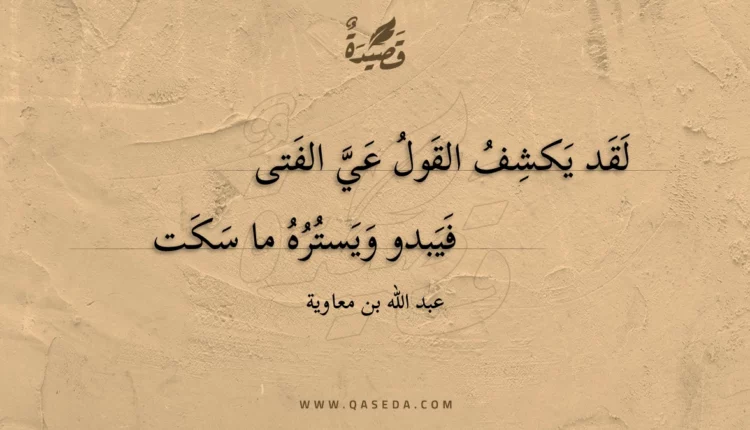 قَصِيدَةٌ
لَقَد يَكشِفُ القَولُ عَيَّ الفَتى
فَيَبدو وَيَستُرُهُ ما سَكَت
عبد الله بن معاوية
WWW.QASEDA.COM